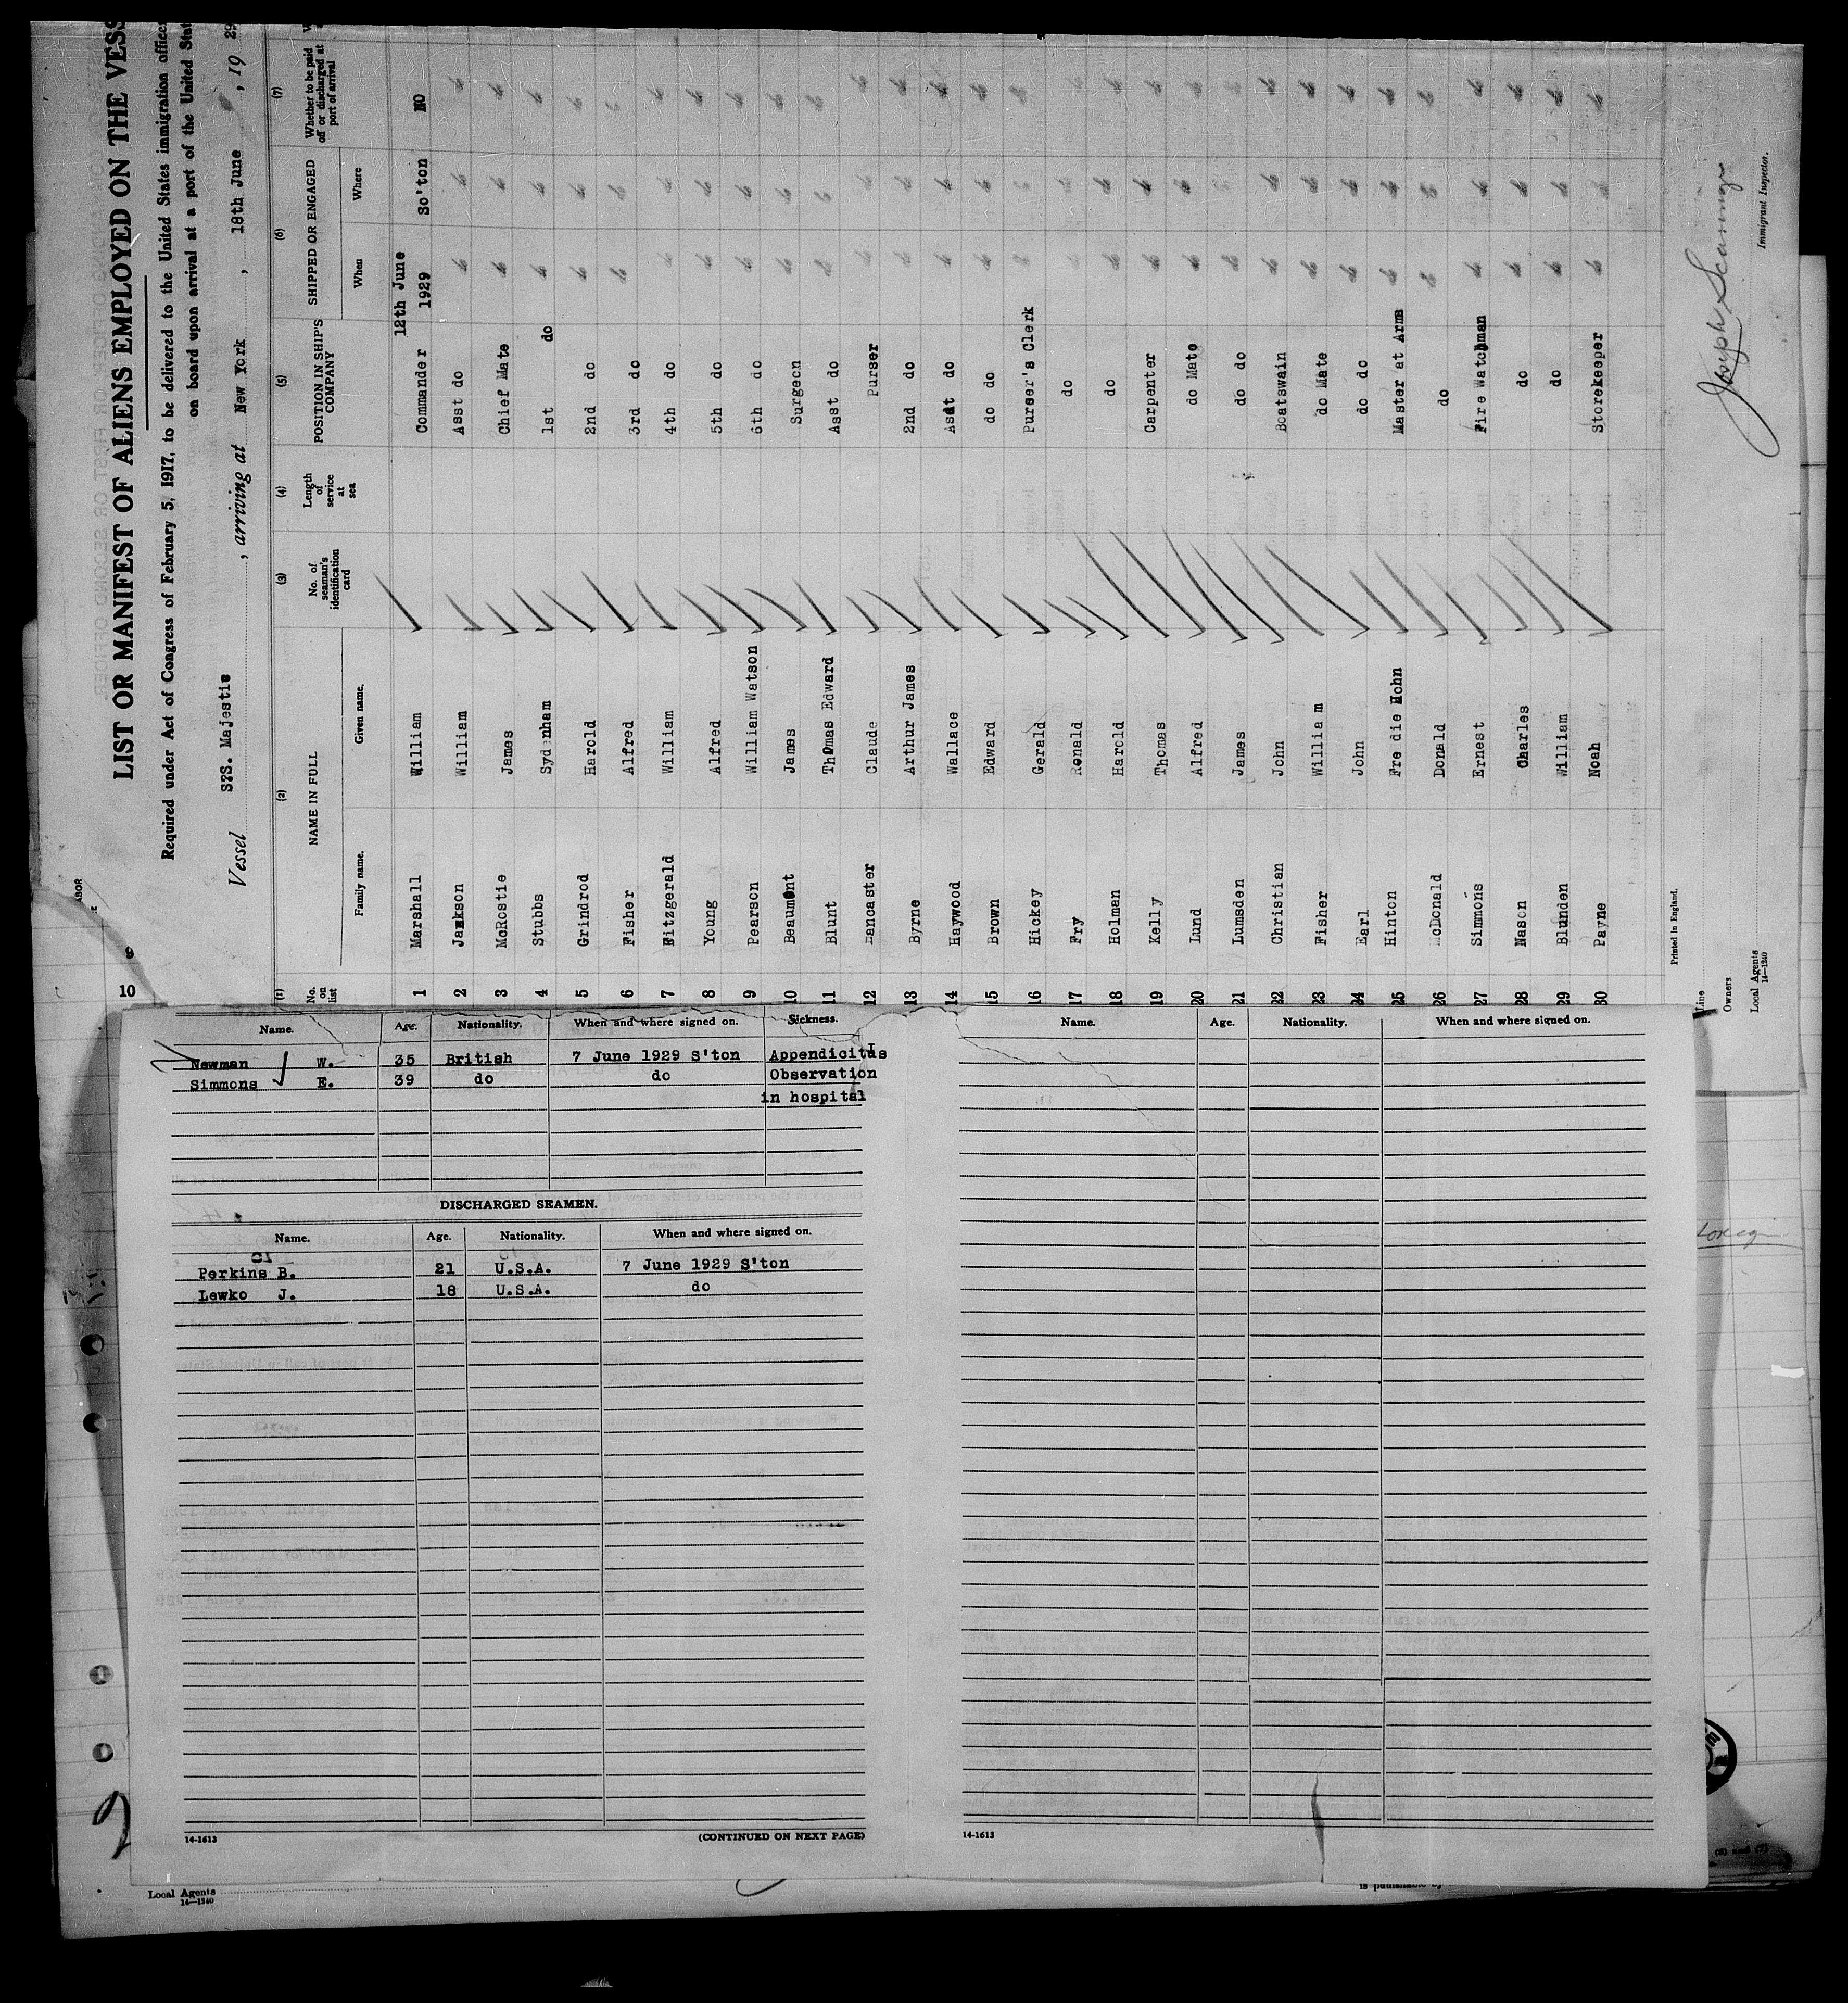 LIST OR MANIFEST OF ALIENS EMPLOYED ON THE VESS
Required under Act of Congress of February 5, 1917, to be delivered to the United States immigration officer
on board upon arrival at a port of the United Stat
Vessel S?S. Majestic, arriving at New York, 18th June, 19 29
(1) (2) (3) (4) (5) (6) (7)
No. on list NAME IN FULL No. of seaman's identification card Length of service at sea POSITION IN SHIP'S COMPANY SHIPPED OR ENGAGED Whether to be paid off or discharged at port of arrival
Family name. Given name. When Where
1 Marshall William Commander 12th June 1929 So'ton NO
2 Jackson William Asst do
3 McRostie James Chief Mate
4 Stubbs Sydenham 1st do
5 Grindrod Harold 2nd do
6 Fisher Alfred 3rd do
7 Fitzgerald William 4th do
8 Young Alfred 5th do
9 Pearson William Watson 6th do
10 Beaumont James Surgeon
11 Blunt Thomas Edward Asst do
12 Lancaster Claude Purser
13 Byrne Arthur James 2nd do
14 Haywood Wallace Asst do
15 Brown Edward do do
16 Hickey Gerald Purser's Clerk
17 Fry Ronald do
18 Holman Harold do
19 Kelly Thomas Carpenter
20 Lund Alfred do Mate
21 Lumsden James do do
22 Christian John Boatswain
23 Fisher William do Mate
24 Earl John do do
25 Hinton Fre die John Master at Arms
26 McDonald Donald do
27 Simmons Ernest Fire Watchman
28 Nason Charles do
29 Blunden William do
30 Payne Noah Storekeeper
Printed in England.
Line
Owners
Local Agents
14—1240
Joseph
Immigrant Inspector.
ABOR
9
10
Name. Age. Nationality. When and where signed on. Sickness.
Newman W. 35 British 7 June 1929 S'ton Appendicitus
Simmons E. 39 do do Observation
in hospital
DISCHARGED SEAMEN.
Name. Age. Nationality. When and where signed on.
Perkins B. 21 U.S.A. 7 June 1929 S'ton
Lewko J. 18 U.S.A. do
14-1613 (CONTINUED ON NEXT PAGE)
Name. Age. Nationality. When and where signed on.
14-1613
Local Agents
14—1240